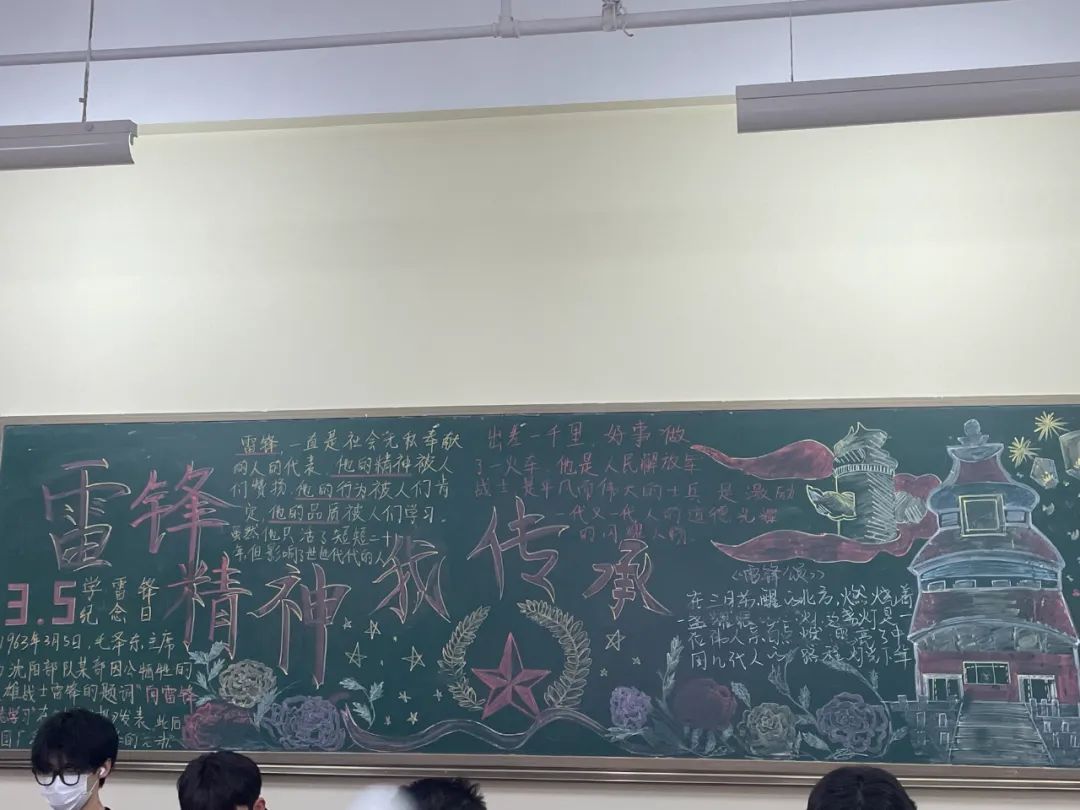 雷锋
精神我传承
雷锋,一直是社会无私奉献
的人的代表,他的精神被人
们赞扬,他的行为被人们肯
定,他的品质被人们学习.
虽然他只活了短短二十
年但影响了世世代代的人
出差一千里,好事做
了一火车.他是人民解放军
战士是平凡而伟大的士兵,是激励
一代又一代人的道德光辉
的
3.5
学雷锋
纪念日
1963年3月5日,毛泽东主席
沈阳部队某部因公牺牲的
雄战士雷锋的题词"向雷锋
学习"在 发表.此后
《雷锋颂》
在三月苏醒的北方,燃烧着
一盏
几代人